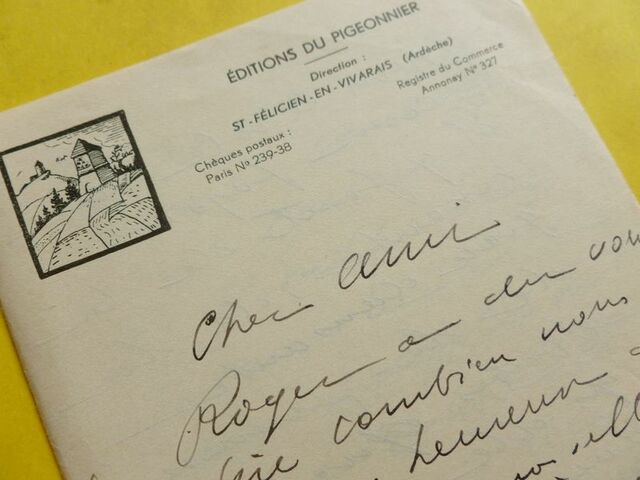 ÉDITIONS DU PIGEONNIER
Direction :
ST-FÉLICIEN-EN-VIVARAIS (Ardèche)
Chèques postaux :
Paris No 239-38
Registre du Commerce
Annonay No 327
Cher ami
Roger a du vou
dire combien nous
heureux